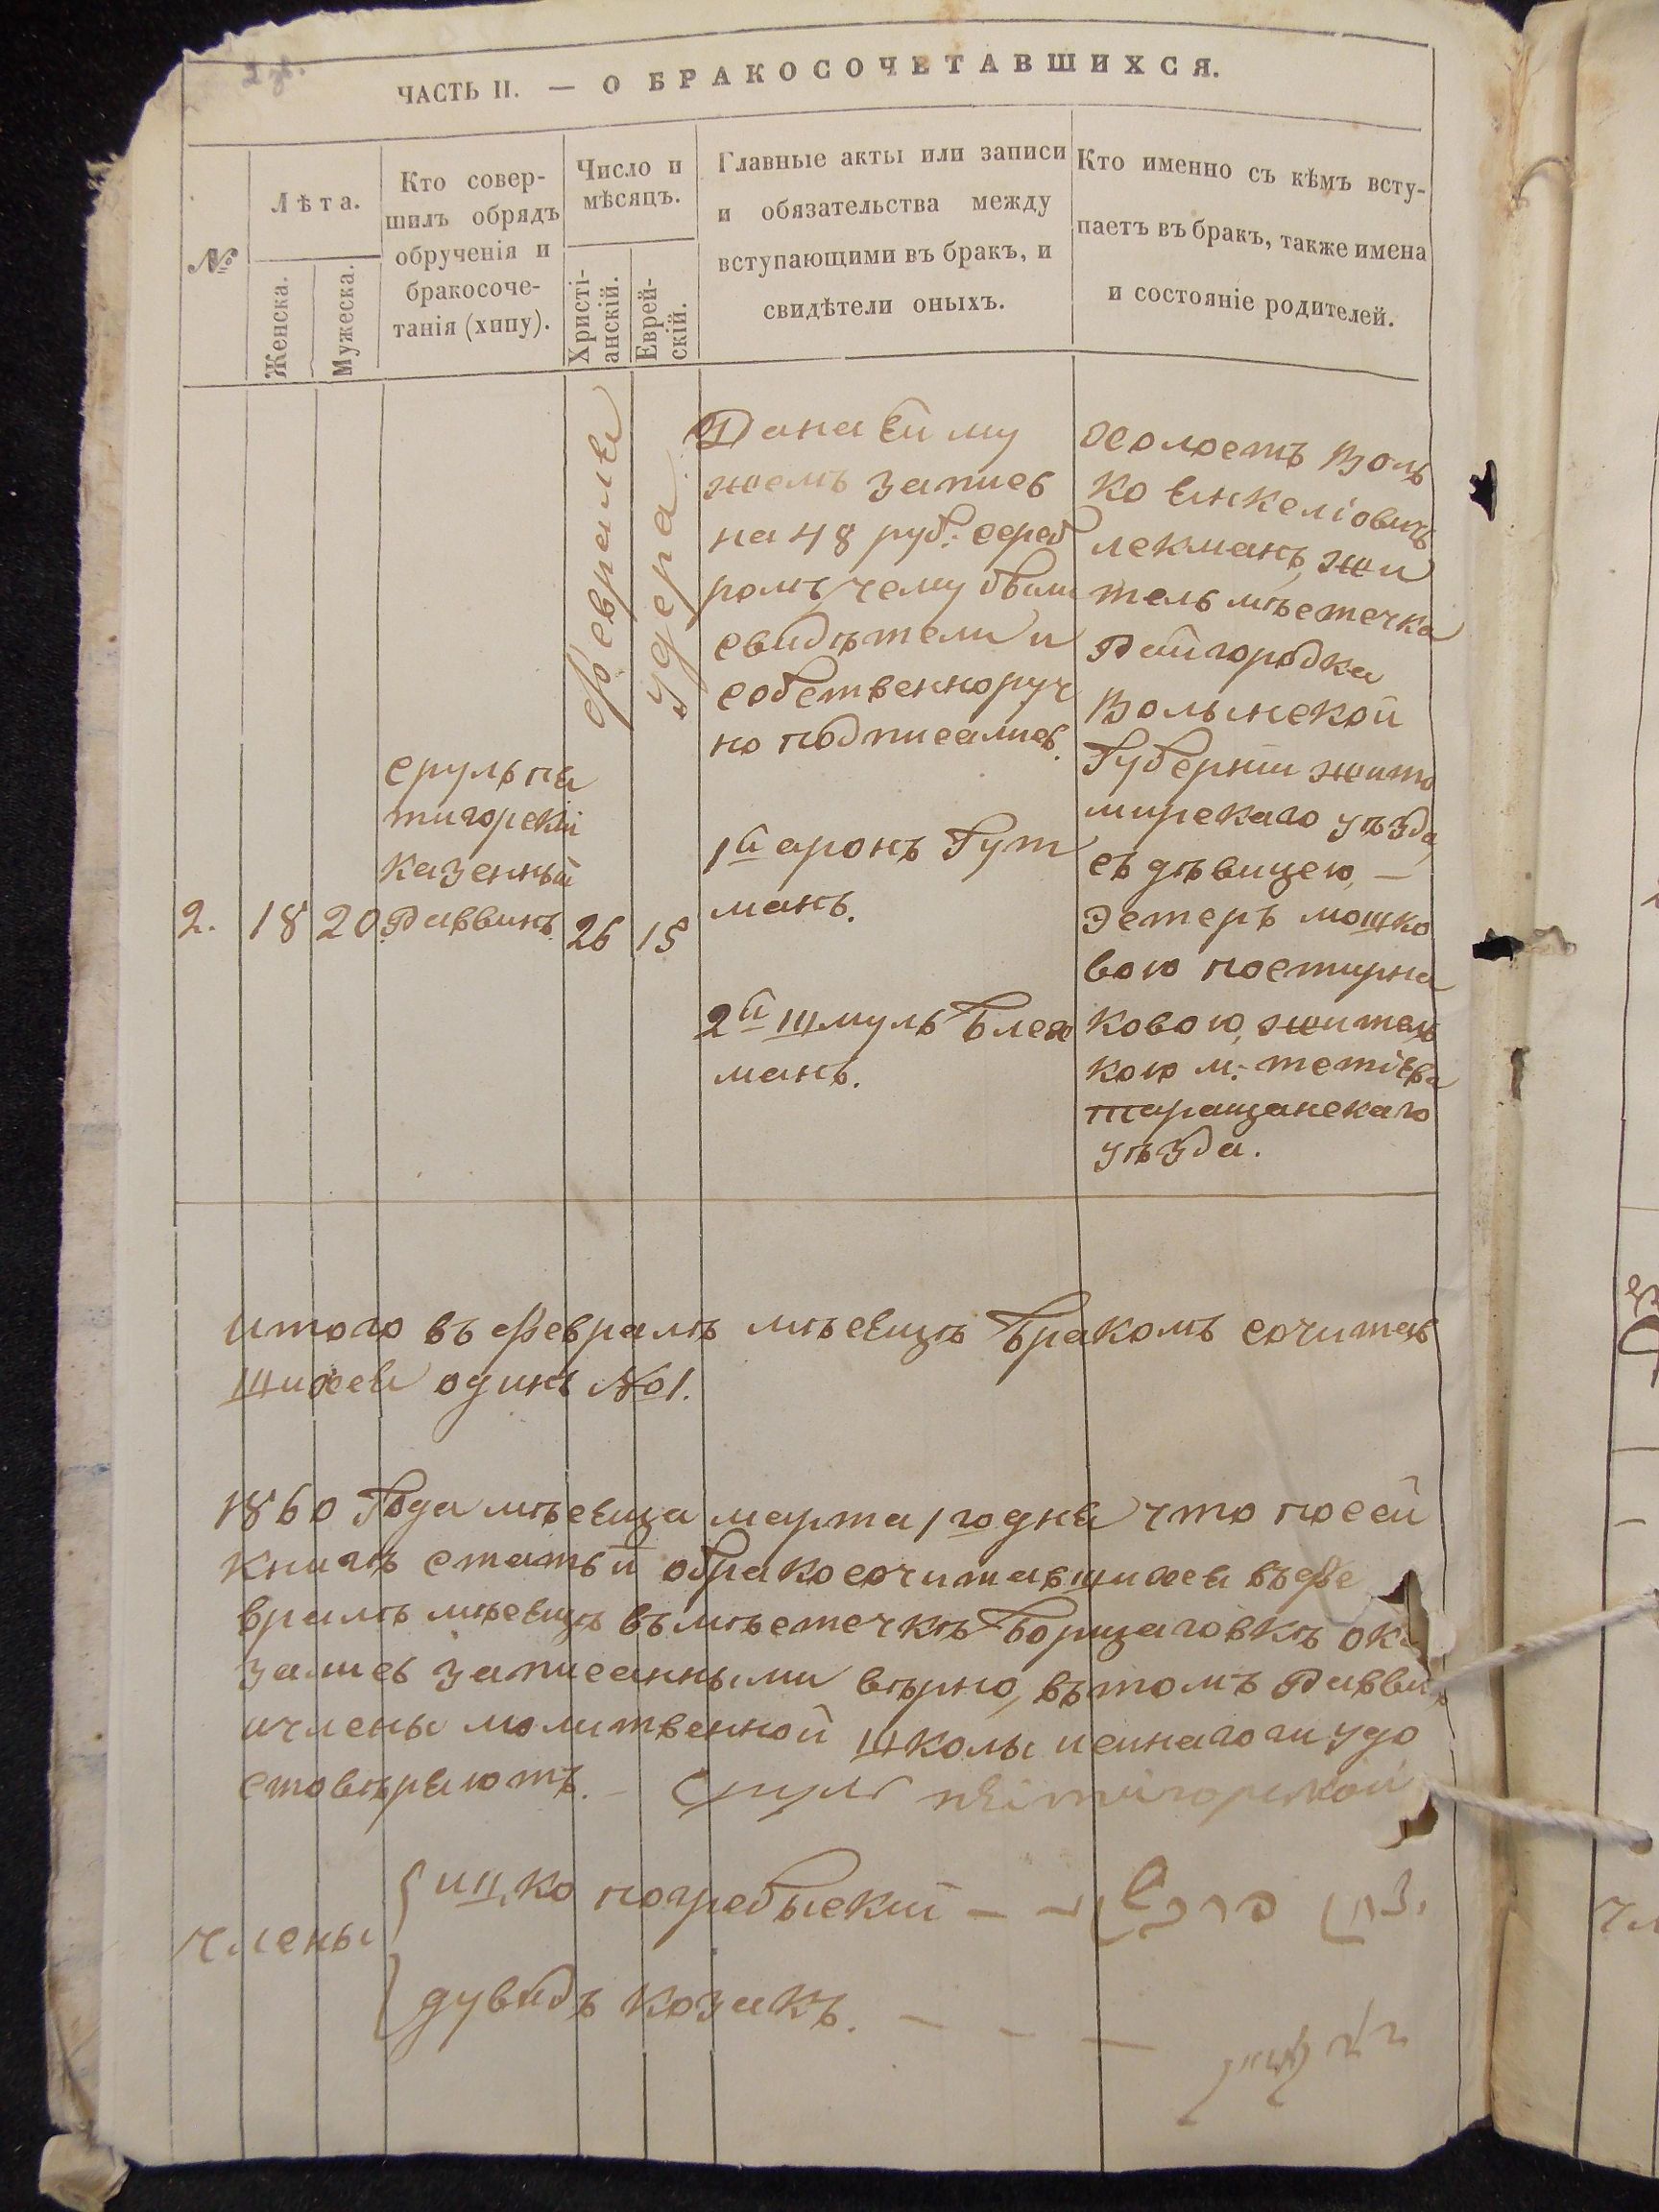 ЧАСТЬ II. — О БРАКОСОЧЕТАВШИХСЯ.
№
Лѣта.
Женска.
Мужеска.
Кто совер-
шилъ обрядъ
обрученія и
бракосоче-
танія (хипу).
Число и
мѣсяцъ.
Христі-
анскій.
Еврей-
скій.
Главные акты или записи
и обязательства между
вступающими въ бракъ, и
свидѣтели оныхъ.
Кто именно съ кѣмъ всту-
паетъ въ бракъ, также имена
и состояніе родителей.
2.
18
20
Срульпя
тигорскій
казенный
Раввинъ.
февраля
26
удера
15
Дана ей му
жемъ запись
на 48 руб: сереб
ромъ, чему были
свидѣтели и
собственноруч
но подписались.
1й аронъ Гут
манъ.
2й Шмуль Блех
манъ.
Холостъ Воль
ко Енкеліовичъ
лекманъ, жи
тель мѣстечка
Райгородка
Волынской
Губерніи жито
мирскаго уѣзда,
съ дѣвицею, —
Эстеръ мошко
вою постирна
ковою, житель
кою м: тетіева
таращанскаго
уѣзда.
Итого въ февралѣ мѣсяцѣ бракомъ сочитав
шихся одинъ №1.
1860 Года мѣсяца марта 1го дня что посей
книгѣ статьи обракосочитавшихся въ фе
вралѣ мѣсяцѣ въ мѣстечкѣ Борщаговкѣ ока
зались записанными вѣрно, въ томъ Раввин
ичлены молитвенной школы
удо
стовѣряютъ. — Сруль пятигорской
члены
ицко погребыский —
дувидъ козакъ. — — —